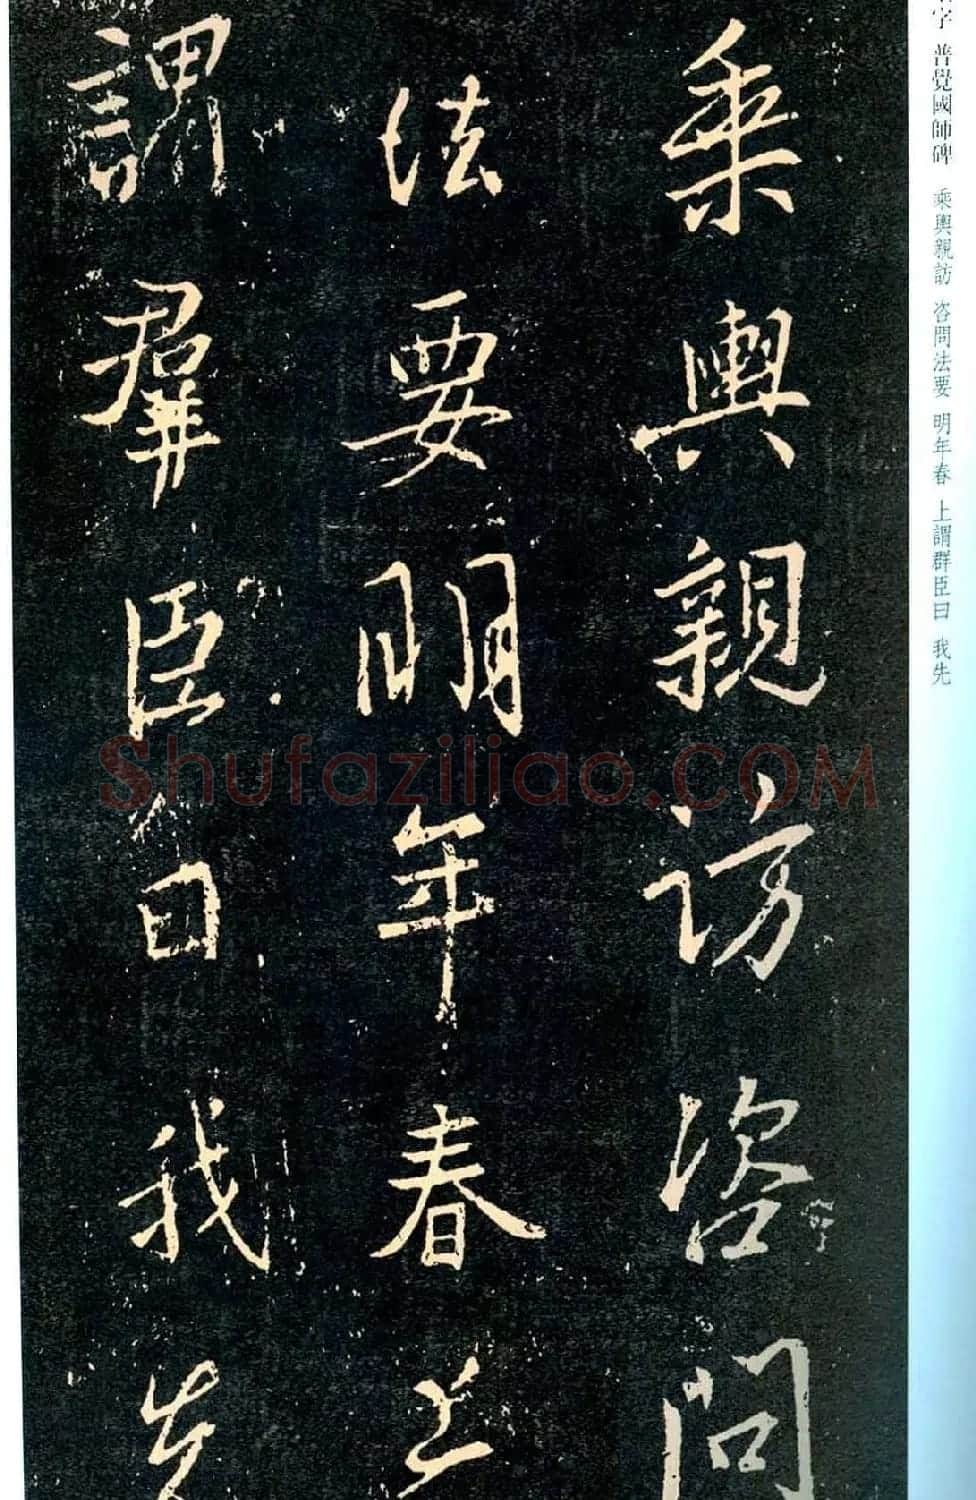 字 普覺國師碑 乘輿親訪 咨問法要 明年春 上謂群臣曰 我先
乘輿親訪咨問
法要明年春上
謂群臣曰我先
Shufaziliao.COM